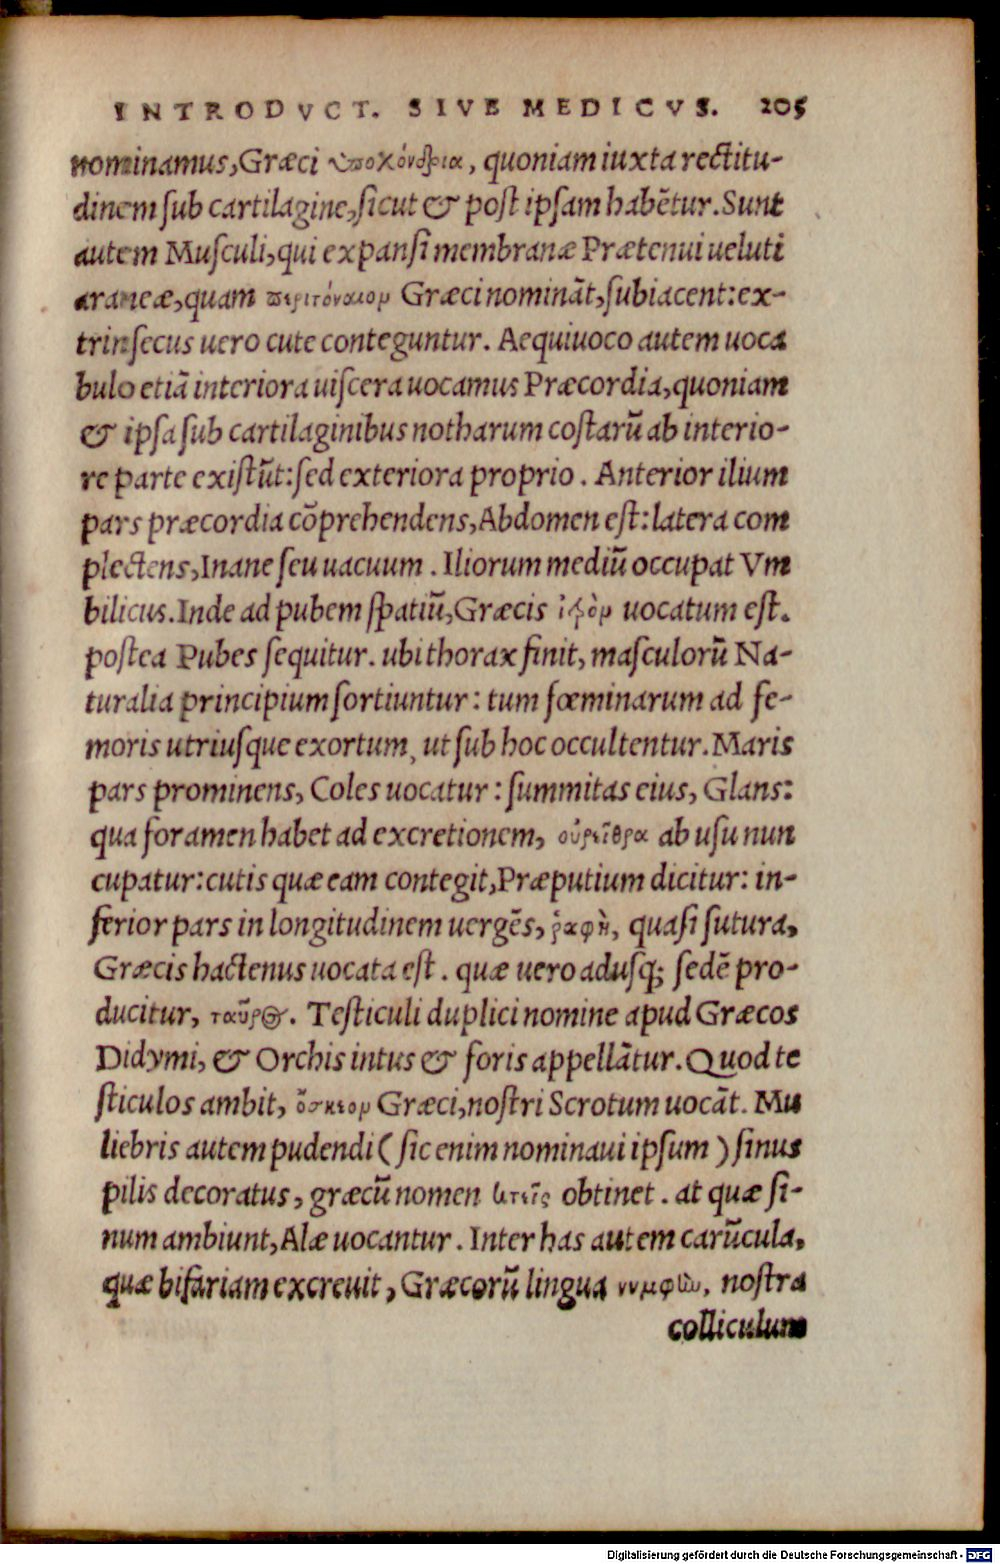 INTRODVCT. SIVE MEDICVS. 205
nominamus, Græci ὑποχόνδρια, quoniam iuxta rectitu-
dinem sub cartilagine, sicut & post ipsam habētur. Sunt
autem Musculi, qui expansi membranæ Prætenui ueluti
araneæ, quam περιτόναιον Græci nominãt, subiacent: ex-
trinsecus uero cute conteguntur. Aequiuoco autem uoca
bulo etiã interiora uiscera uocamus Præcordia, quoniam
& ipsa sub cartilaginibus notharum costarũ ab interio-
re parte existũt: sed exteriora proprio. Anterior ilium
pars præcordia cõprehendens, Abdomen est: latera com
plectens, Inane seu uacuum. Iliorum mediũ occupat Vm
bilicus. Inde ad pubem spatiũ, Græcis uocatum est.
postea Pubes sequitur. ubi thorax finit, masculorũ Na-
turalia principium sortiuntur: tum fœminarum ad fe-
moris utriusque exortum, ut sub hoc occultentur. Maris
pars prominens, Coles uocatur: summitas eius, Glans:
qua foramen habet ad excretionem, οὐρεῖθρα ab usu nun
cupatur: cutis quæ eam contegit, Præputium dicitur: in-
ferior pars in longitudinem uergēs, ῥαφὴ, quasi sutura,
Græcis hactenus uocata est. quæ uero adusq; sedē pro-
ducitur, ταῦρος. Testiculi duplici nomine apud Græcos
Didymi, & Orchis intus & foris appellãtur. Quod te
sticulos ambit, ὄσχεον Græci, nostri Scrotum uocãt. Mu
liebris autem pudendi (sic enim nominaui ipsum) sinus
pilis decoratus, græcũ nomen κτεὶς obtinet. at quæ si-
num ambiunt, Alæ uocantur. Inter has autem carũcula,
quæ bifariam excreuit, Græcorũ lingua νυμφὼ, nostra
colliculum
Digitalisierung gefördert durch die Deutsche Forschungsgemeinschaft - DFG